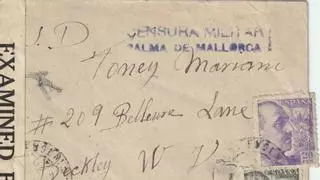 CENSURA MILITAR
PALMA DE MALLORCA
S. D.
Toney Mariani
# 209 Bellevue Lane
Beckley W V
EXAMINED
ESPAÑA